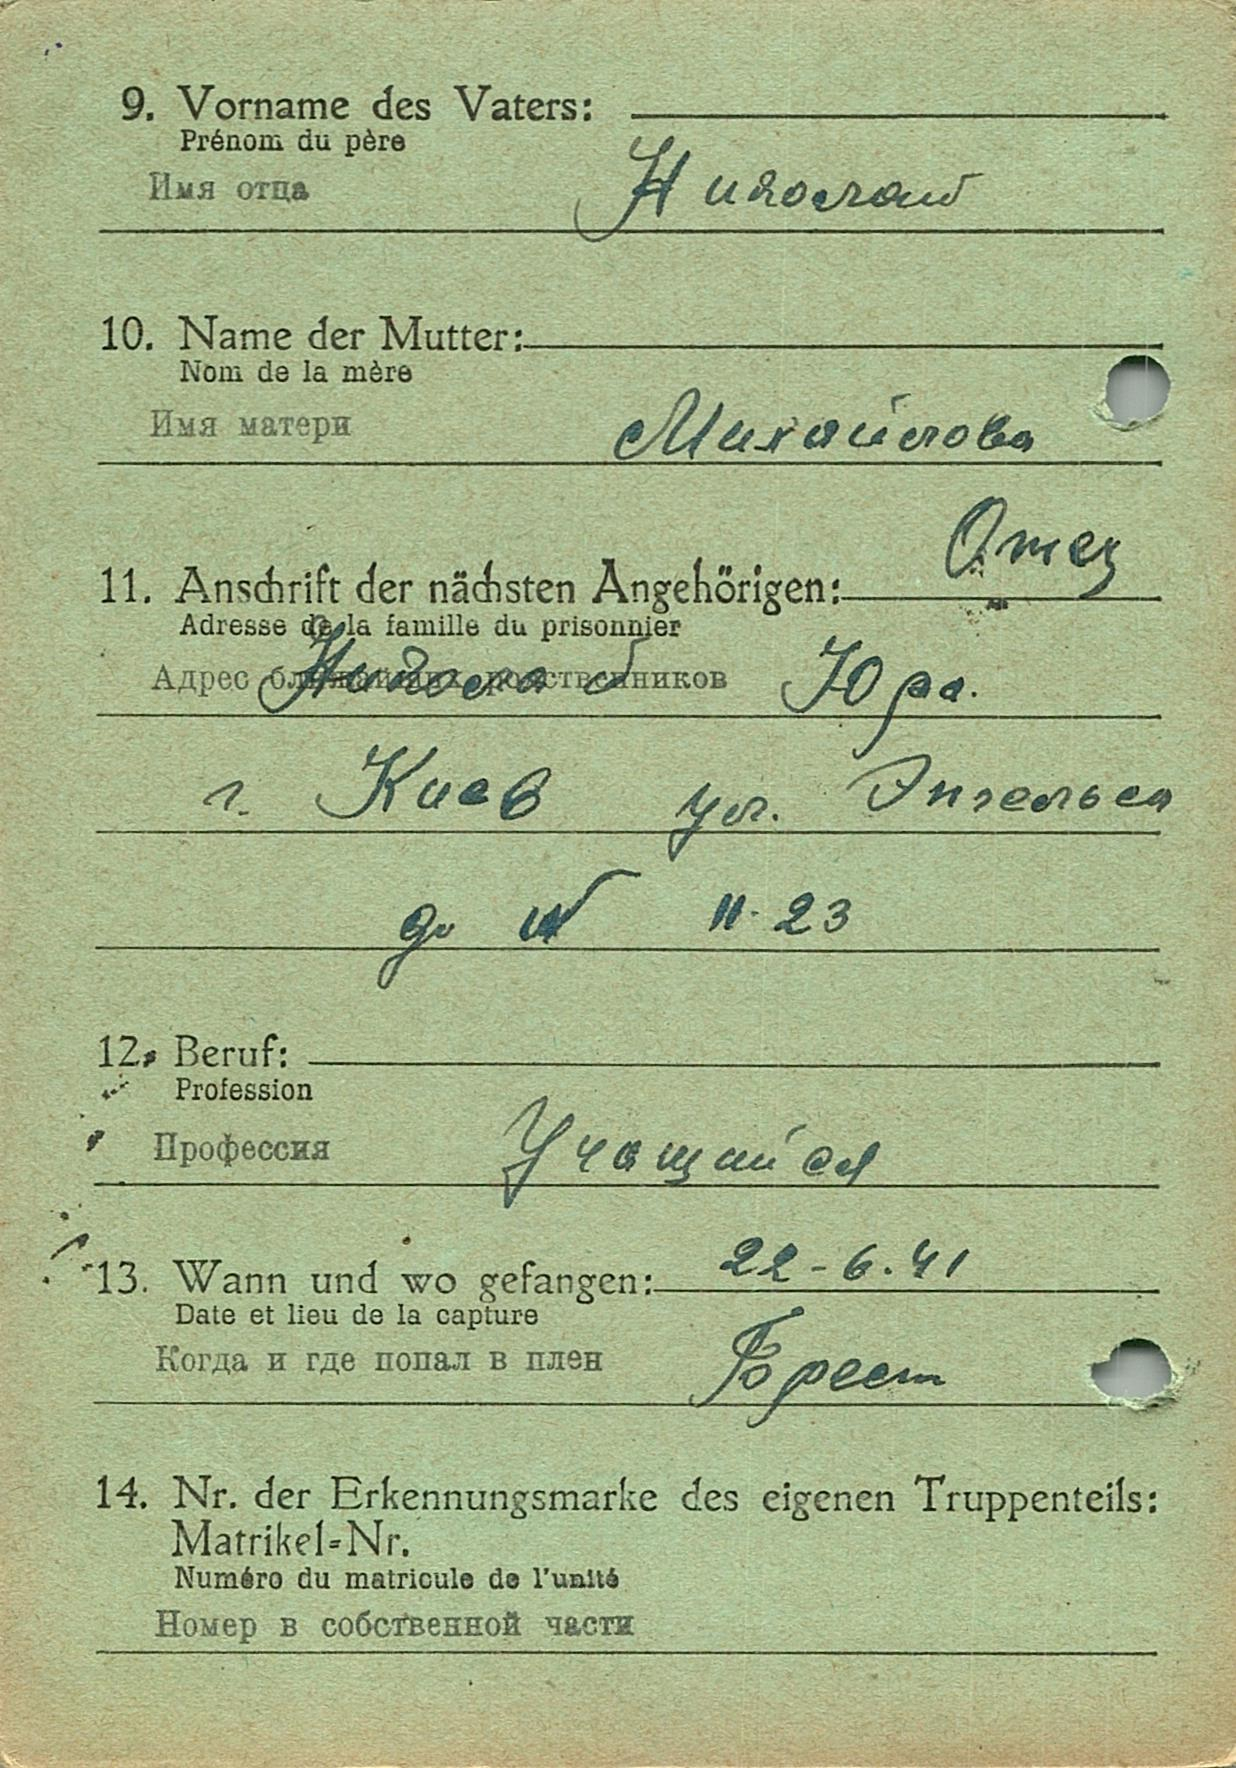 9. Vorname des Vaters:
Prénom du père
Имя отца
Николай
10. Name der Mutter:
Nom de la mère
Имя матери
Михайлова
Отец
11. Anschrift der nächsten Angehörigen:
Adresse de la famille du prisonnier
Адрес ближайших родственников
Юра.
г. Киев ул. Энгельса
11-23
12. Beruf:
Profession
Профессия
Учащийся
13. Wann und wo gefangen: 22-6.41
Date et lieu de la capture
Когда и где попал в плен
Брест
14. Nr. der Erkennungsmarke des eigenen Truppenteils:
Matrikel-Nr.
Numéro du matricule de l'unité
Номер в собственной части